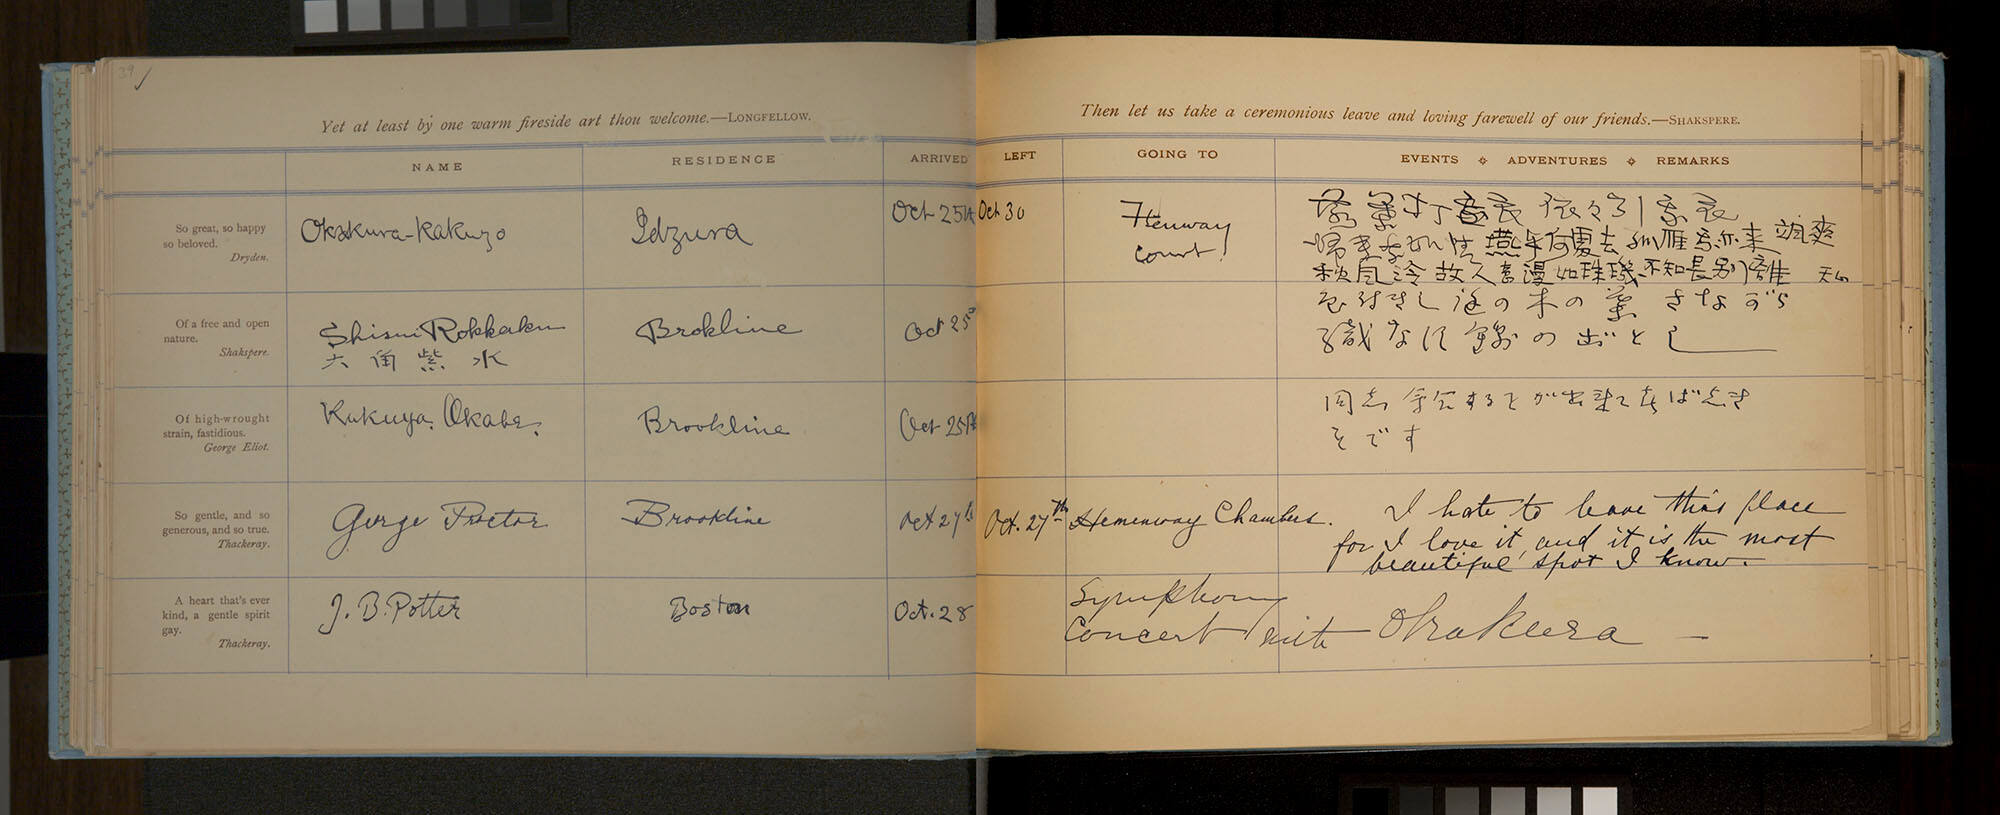 39
Yet at least by one warm fireside art thou welcome.—LONGFELLOW.
NAME RESIDENCE ARRIVED
So great, so happy
so beloved.
Dryden.
Okakura-Kakuzo Idzura Oct 25th
Of a free and open
nature.
Shakspere.
Shisui Rokkaku Brokline Oct 25
六角紫水
Of high-wrought
strain, fastidious.
George Eliot.
Kakuya. Okabe. Brookline Oct 25th
So gentle, and so
generous, and so true.
Thackeray.
George Proctor Brookline Oct 27th
A heart that's ever
kind, a gentle spirit
gay.
Thackeray.
J. B. Potter Boston Oct. 28
Then let us take a ceremonious leave and loving farewell of our friends.—SHAKSPERE.
LEFT GOING TO EVENTS ADVENTURES REMARKS
Oct 30 Fenway
Court!
落葉打 衣 依々引 衣
何處去 雁 来 颯爽
秋風冷 故人 漫如珠璣 不知長別離
庭の木の葉 さながら
錦の
同志 が出来
そです
Oct. 27th Hemenway Chambers. I hate to leave this place
for I love it, and it is the most
beautiful spot I know.
Symphony
Concert with Okakura —